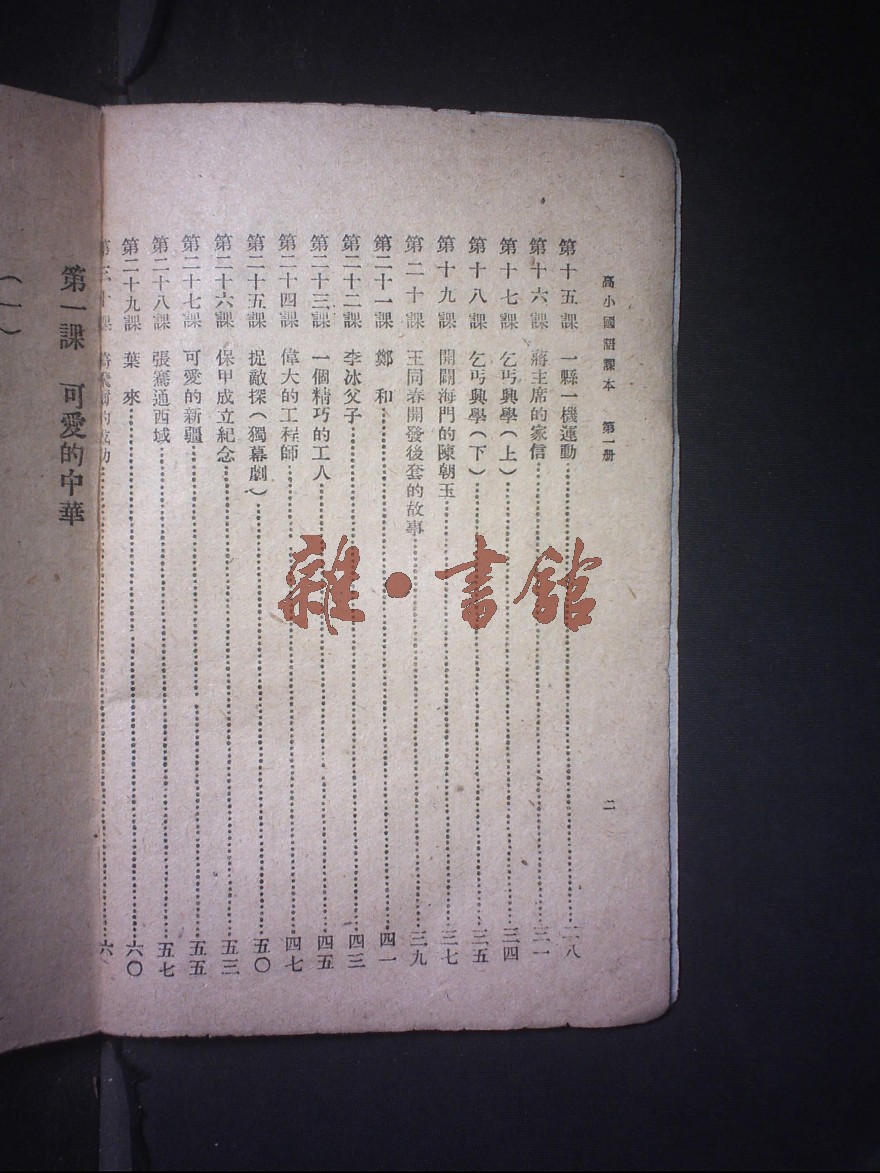 高小國語課本 第一册 二
第十五課 一縣一機運動 二八
第十六課 蔣主席的家信 三一
第十七課 乞丐興學(上) 三四
第十八課 乞丐興學(下) 三五
第十九課 開闢海門的陳朝玉 三七
第二十課 王同春開發後套的故事 三九
第二十一課 鄭和 四一
第二十二課 李冰父子 四三
第二十三課 一個精巧的工人 四五
第二十四課 偉大的工程師 四七
第二十五課 捉敵探(獨幕劇) 五〇
第二十六課 保甲成立紀念 五三
第二十七課 可愛的新疆 五五
第二十八課 張騫通西域 五七
第二十九課 葉來 六〇
第三十課 的成功 六
第一課 可愛的中華
(一)
雜·書館